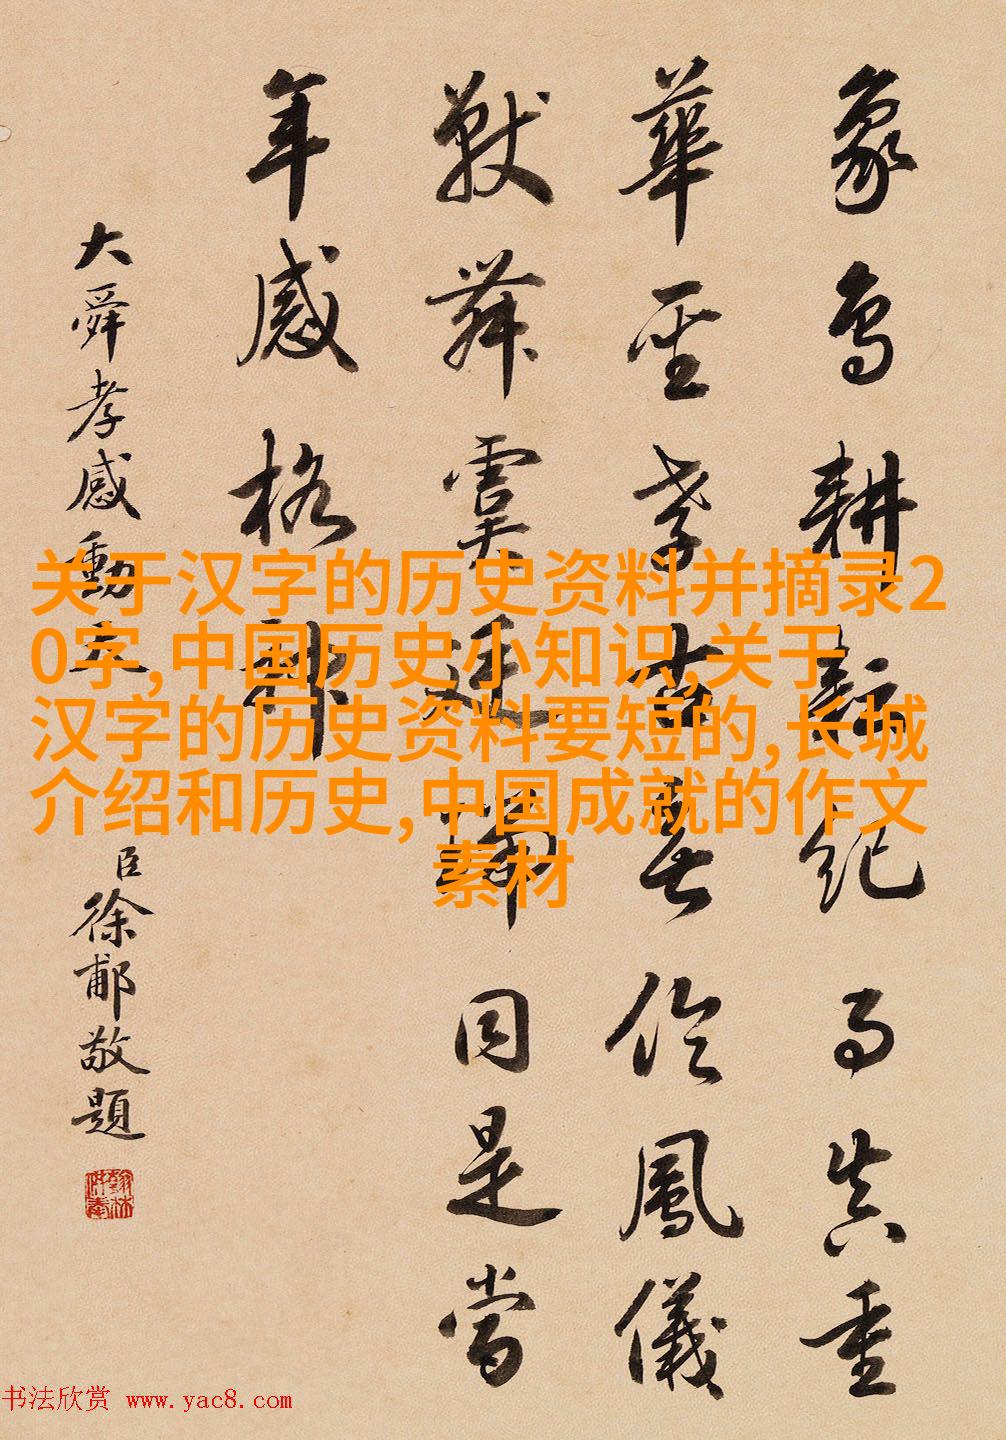 象鳥耕耘紀事真重
華聖孝古無倫鳳儀
獸舞虞廷瑞同是當
年感格神
大舜孝感動天
臣徐郙敬題
关于汉字的历史资料并摘录2
0字,中国历史小知识,关于
汉字的历史资料要短的,长城
介绍和历史,中国成就的作文
素材
书法欣赏 www.yac8.com